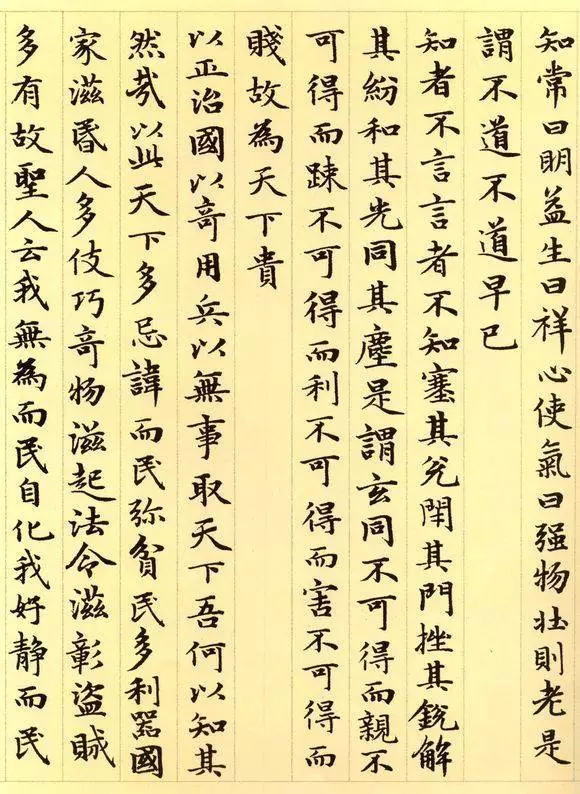 知常曰明益生曰祥心使氣曰强物壯則老是
謂不道不道早已
知者不言言者不知塞其兌閇其門挫其銳解
其紛和其光同其塵是謂玄同不可得而親不
可得而踈不可得而利不可得而害不可得而
賤故為天下貴
以正治國以竒用兵以無事取天下吾何以知其
然㢤以此天下多忌諱而民弥貧民多利器國
家滋昬人多伎巧竒物滋起法令滋彰盜賊
多有故聖人云我無為而民自化我好静而民